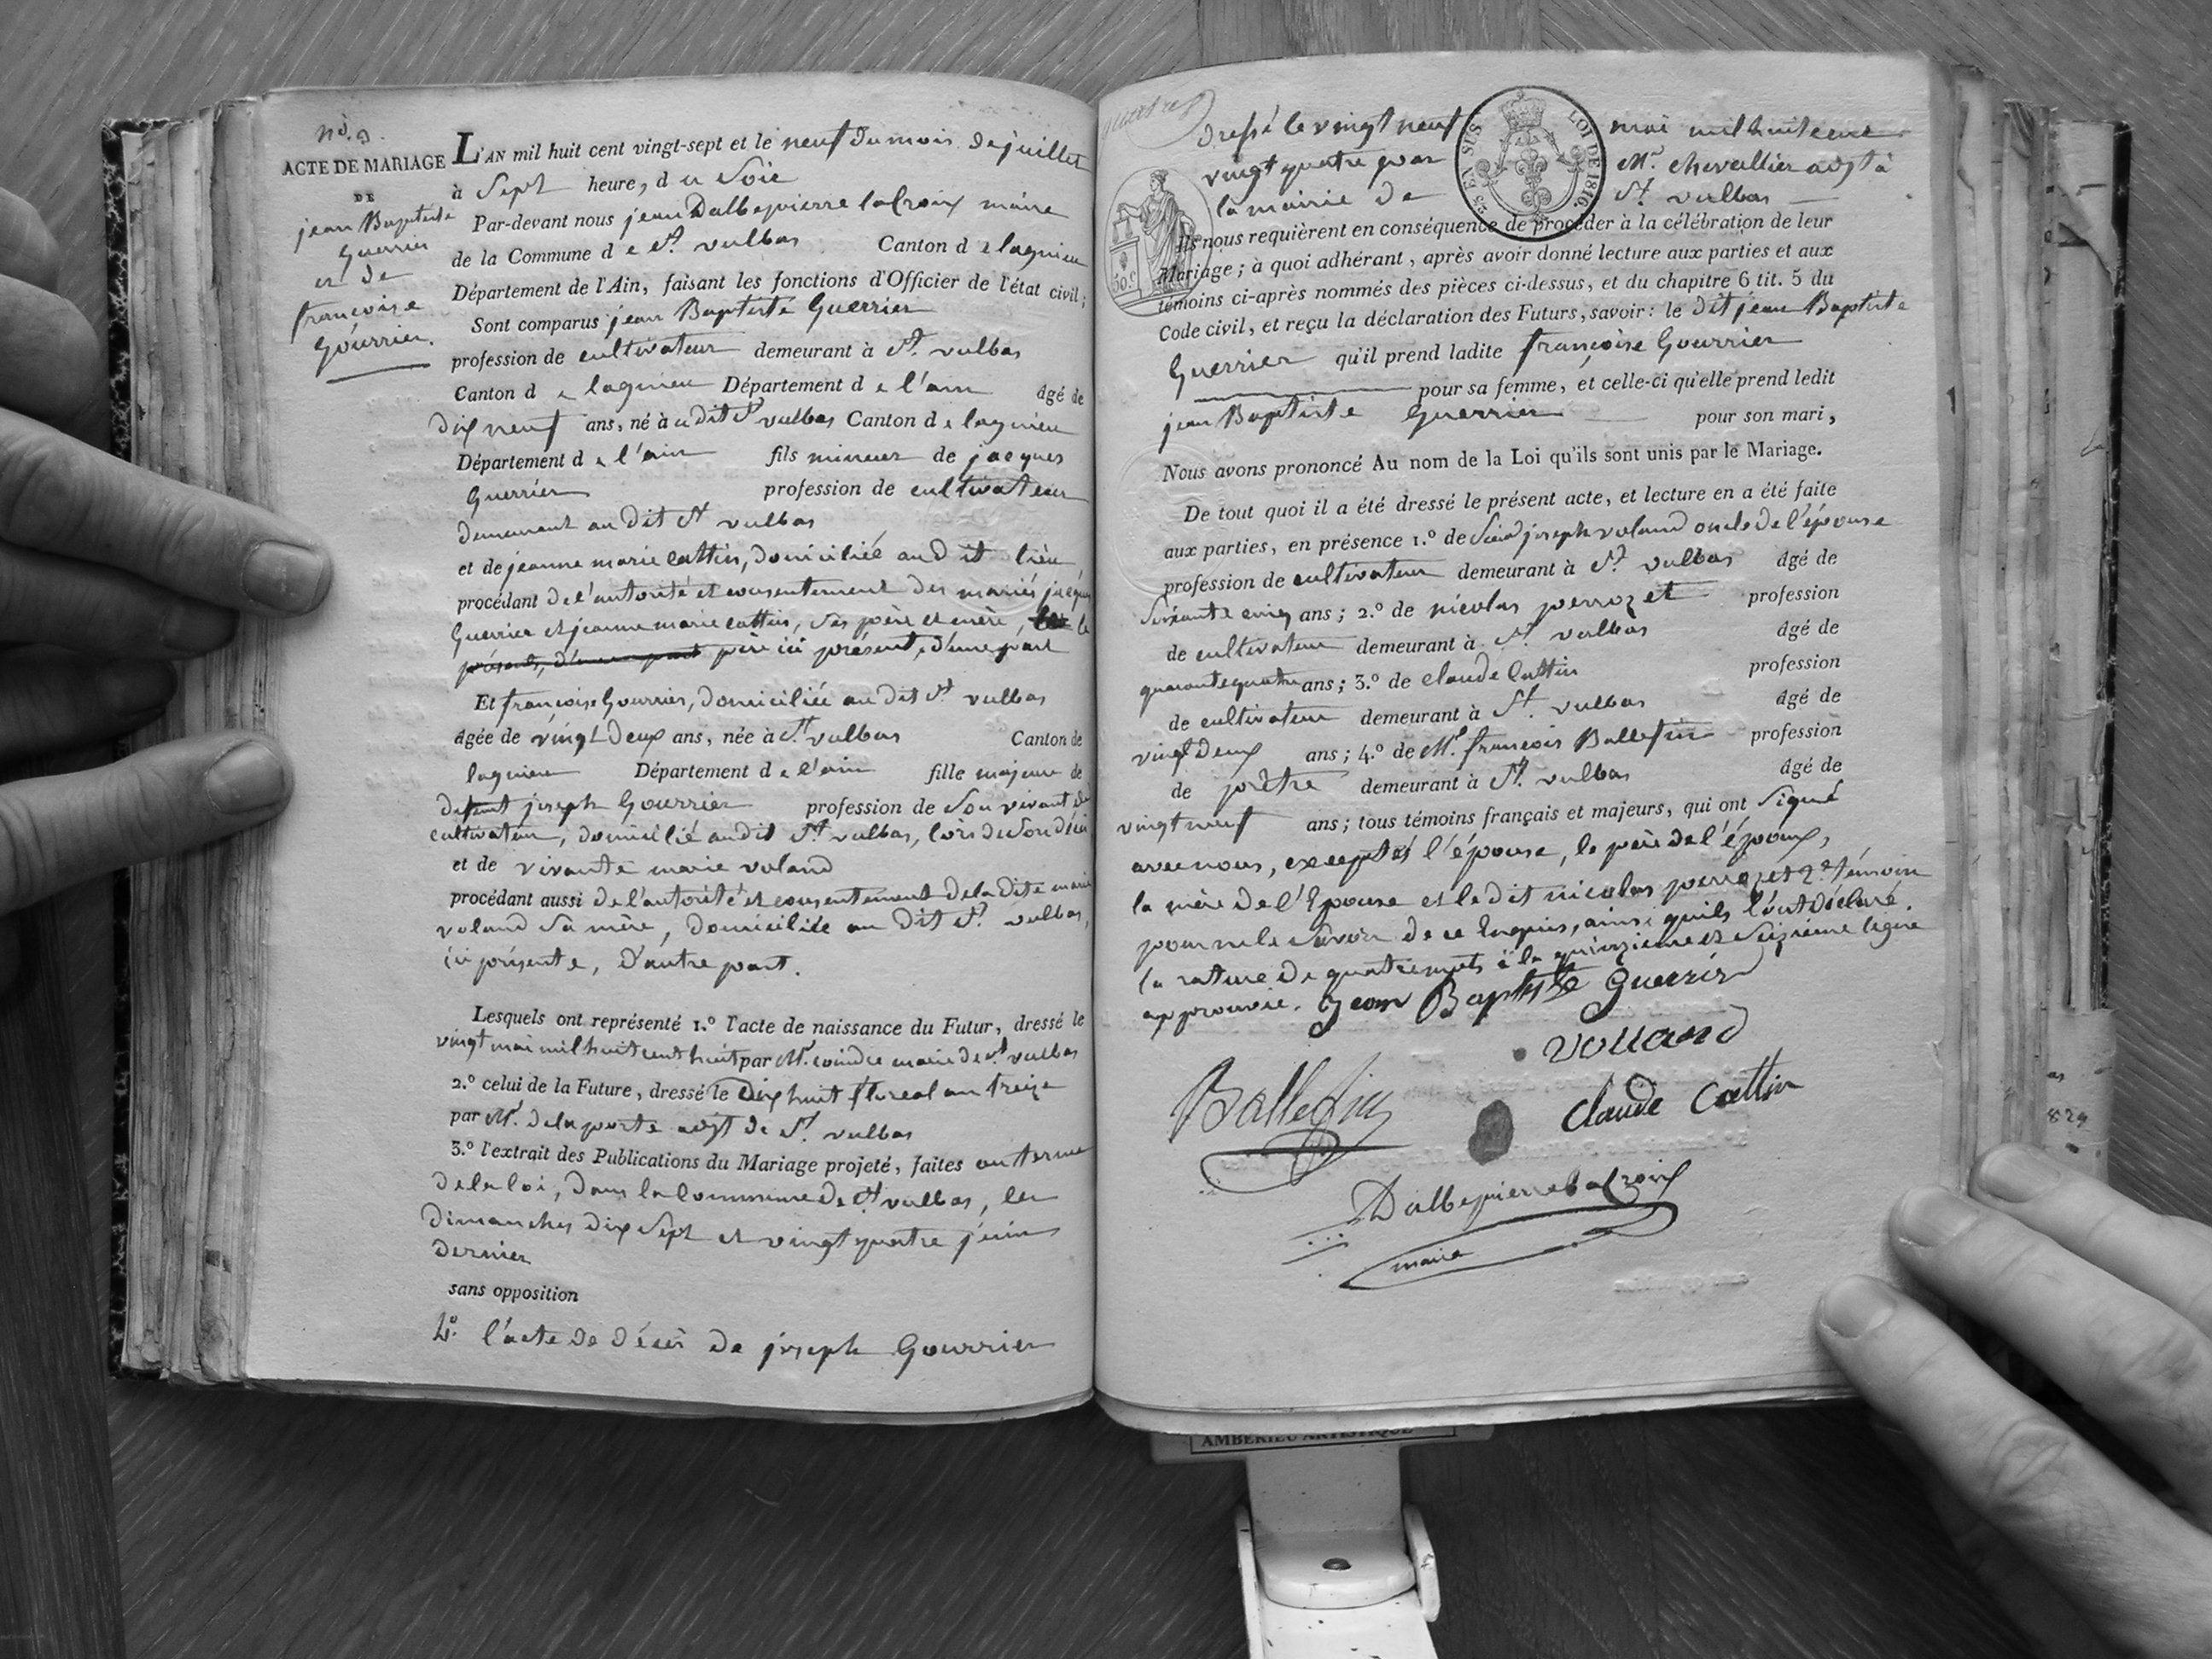 nº. 9.
ACTE DE MARIAGE
DE
jean Baptiste
Guerrier
et de
françoise
Gourrier.
L'AN mil huit cent vingt-sept et le neuf du mois de juillet
à Sept heure, du Soir
Par-devant nous jean Dalbepierre laCroix maire
de la Commune de St. vulbas Canton de lagnieu
Département de l'Ain, faisant les fonctions d'Officier de l'état civil;
Sont comparus jean Baptiste Guerrier
profession de cultivateur demeurant à St. vulbas
Canton de lagnieu Département de l'ain âgé de
dix neuf ans, né à u dit St vulbas Canton de lagnieu
Département de l'ain fils mineur de jacques
Guerrier profession de cultivateur
demeurant au dit St vulbas
et de jeanne marie Cattin, domiciliée au dit lieu
procédant de l'autorité et consentement des mariés jacques
Guerrier et jeanne marie Cattin, ses père et mère, le
présents, d'une part père ici présent, d'une part
Et françoise Gourrier, domiciliée au dit St. vulbas
âgée de vingt deux ans, née à St. vulbas Canton de
lagnieu Département de l'ain fille majeure de
defunt joseph Gourrier profession de Son vivant de
cultivateur, domicilié au dit St vulbas, lors de Son décès
et de vivante marie voland
procédant aussi de l'autorité et consentement de la dite marie
voland Sa mère, domiciliée au dit St. vulbas,
ici présente, d'autre part.
Lesquels ont représenté 1.º l'acte de naissance du Futur, dressé le
vingt mai mil huit cent huit par Mr. coindre maire de St vulbas
2.º celui de la Future, dressé le Dix huit floreal an treize
par Mr. delaporte adjt de St. vulbas
3.º l'extrait des Publications du Mariage projeté, faites au terme
de la loi, dans la Commune de St vulbas, les
dimanches dix Sept et vingt quatre juin
dernier
sans opposition
4º. l'acte de décès de joseph Gourrier
dressé le vingt neuf mai mil huit cent
vingt quatre par Mr. chevallier adjt à
la mairie de St. vulbas
LOI DE 1816.
50 c
Ils nous requièrent en conséquence de procéder à la célébration de leur
Mariage; à quoi adhérant, après avoir donné lecture aux parties et aux
témoins ci-après nommés des pièces ci-dessus, et du chapitre 6 tit. 5 du
Code civil, et reçu la déclaration des Futurs, savoir: le dit jean Baptiste
Guerrier qu'il prend ladite françoise Gourrier
pour sa femme, et celle-ci qu'elle prend ledit
jean Baptiste Guerrier pour son mari,
Nous avons prononcé Au nom de la Loi qu'ils sont unis par le Mariage.
De tout quoi il a été dressé le présent acte, et lecture en a été faite
aux parties, en présence 1.º de joseph voland oncle de l'épouse
profession de cultivateur demeurant à St. vulbas âgé de
Soixante cinq ans; 2.º de nicolas perrozet profession
de cultivateur demeurant à St vulbas âgé de
quarante quatre ans; 3.º de claude Cattin profession
de cultivateur demeurant à St. vulbas âgé de
vingt deux ans; 4.º de Mr. francois Ballefin profession
de prêtre demeurant à St. vulbas âgé de
vingt neuf ans; tous témoins français et majeurs, qui ont Signé
avec nous, exceptés l'épouse, le père de l'époux,
la mère de l'Epouse et le dit nicolas perrozet 2e témoin
pour ne le Savoir de ce Enquis, ainsi quils l'ont déclaré.
la rature de quatre mots à la quinzieme et Seizieme ligne
approuvée. Jean Baptiste Guerrier
volland
Ballefin
claude Cattin
Dalbepierre laCroix
maire
AMBERIEU ARTISTIQUE